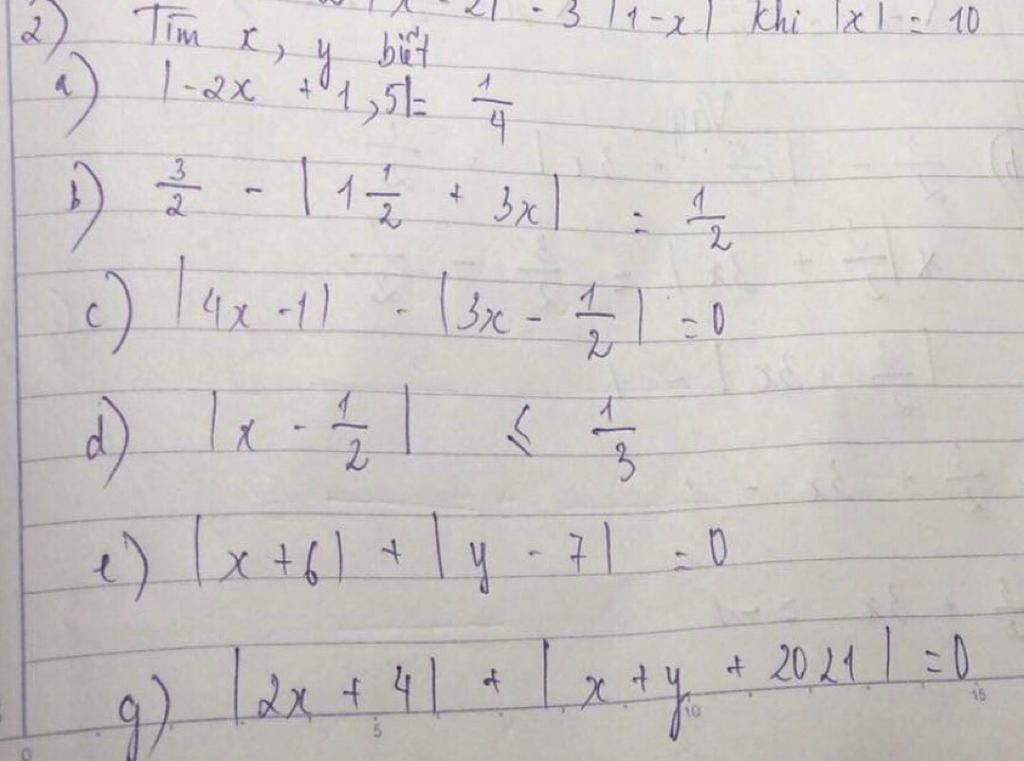 |x - 2| - 3 |1-x| khi |x| = 10
2) Tìm x, y biết
a) |-2x + 1,5| = 1/4
b) 3/2 - |1 1/2 + 3x| = 1/2
c) |4x - 1| - |3x - 1/2| = 0
d) |x - 1/2| ≤ 1/3
e) |x + 6| + |y - 7| = 0
g) |2x + 4| + |x + y + 2021| = 0
0 5 10 15